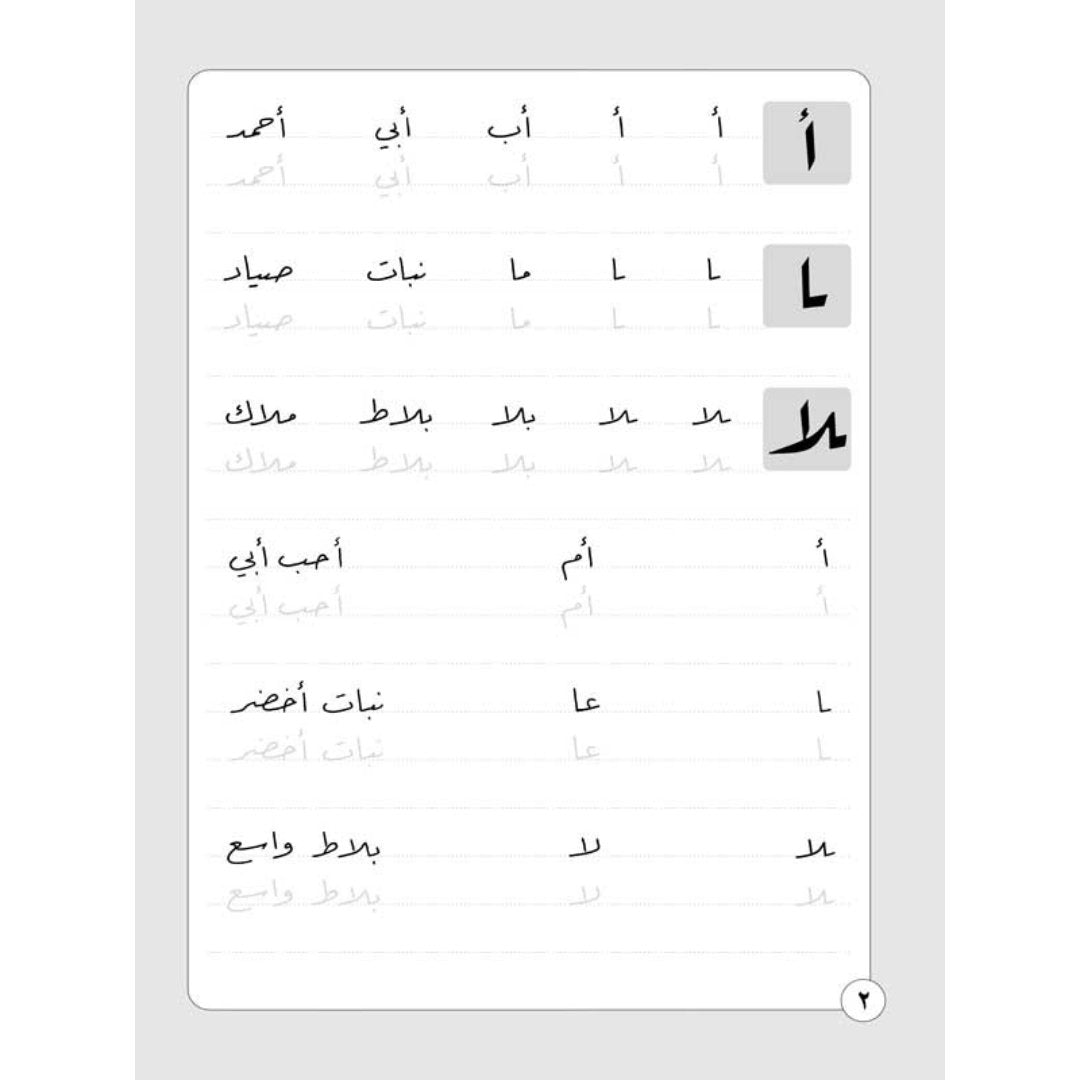 أ أ أ أب أبي أحمد
أ أ أب أبي أحمد
ـا ـا ـا ما نبات صياد
ـا ـا ما نبات صياد
ـلا ـلا ـلا بلا بلاط ملاك
ـلا ـلا بلا بلاط ملاك
أ أم أحب أبي
أ أم أحب أبي
ـا عا نبات أخضر
ـا عا نبات أخضر
ـلا لا بلاط واسع
ـلا لا بلاط واسع
٢